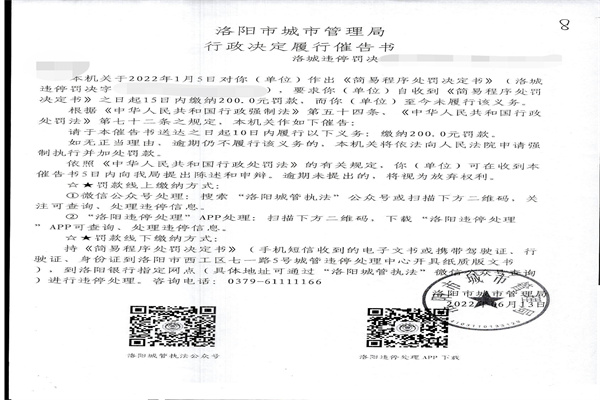 8
洛阳市城市管理局
行政决定履行催告书
洛城违停罚决
本机关于2022年1月5日对你（单位）作出《简易程序处罚决定书》（洛城
违停罚决字                    ），要求你（单位）自收到《简易程序处罚
决定书》之日起15日内缴纳200.0元罚款，而你（单位）至今未履行该义务。
根据《中华人民共和国行政强制法》第五十四条、《中华人民共和国行政
处罚法》第七十二条之规定，本机关作如下催告：
请于本催告书送达之日起10日内履行以下义务：缴纳200.0元罚款。
如无正当理由，逾期仍不履行该义务的，本机关将依法向人民法院申请强
制执行并加处罚款。
依照《中华人民共和国行政处罚法》的有关规定，你（单位）可在收到本
催告书5日内向我局提出陈述和申辩。逾期未提出的，将视为放弃权利。
☆★罚款线上缴纳方式：
①微信公众号处理：搜索“洛阳城管执法”公众号或扫描下方二维码，关
注可查询、处理违停信息。
②“洛阳违停处理”APP处理：扫描下方二维码，下载“洛阳违停处理
”APP可查询、处理违停信息。
☆★罚款线下缴纳方式：
持《简易程序处罚决定书》（手机短信收到的电子文书或携带驾驶证、行
驶证、身份证到洛阳市西工区七一路5号城管违停处理中心开具纸质版文书
），到洛阳银行指定网点（具体地址可通过“洛阳城管执法”微信公众号查询
）进行违停处理。咨询电话：0379-61111166
洛阳市城市管理局
2022年06月13日
洛阳城管执法公众号
洛阳违停处理APP下载